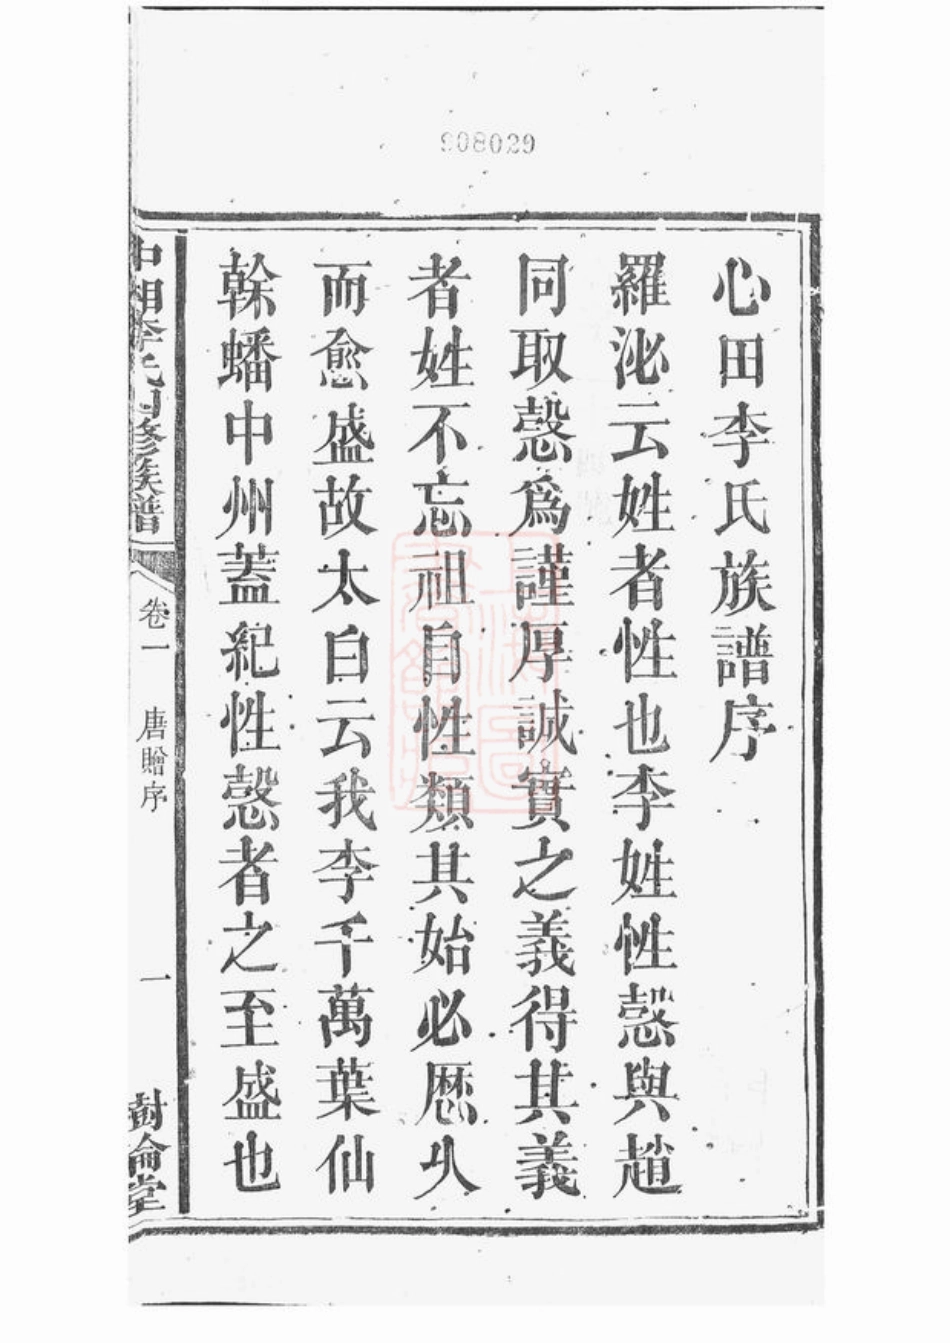 908029
心田李氏族譜序
羅泌云姓者性也李姓性愨與趙
同取愨爲謹厚誠實之義得其義
者姓不忘祖自性類其始必歷久
而愈盛故太白云我李千萬葉仙
榦蟠中州蓋紀性愨者之至盛也
中湘李氏四修族譜
卷一
唐贈序
一
樹倫堂
上海圖
書館藏